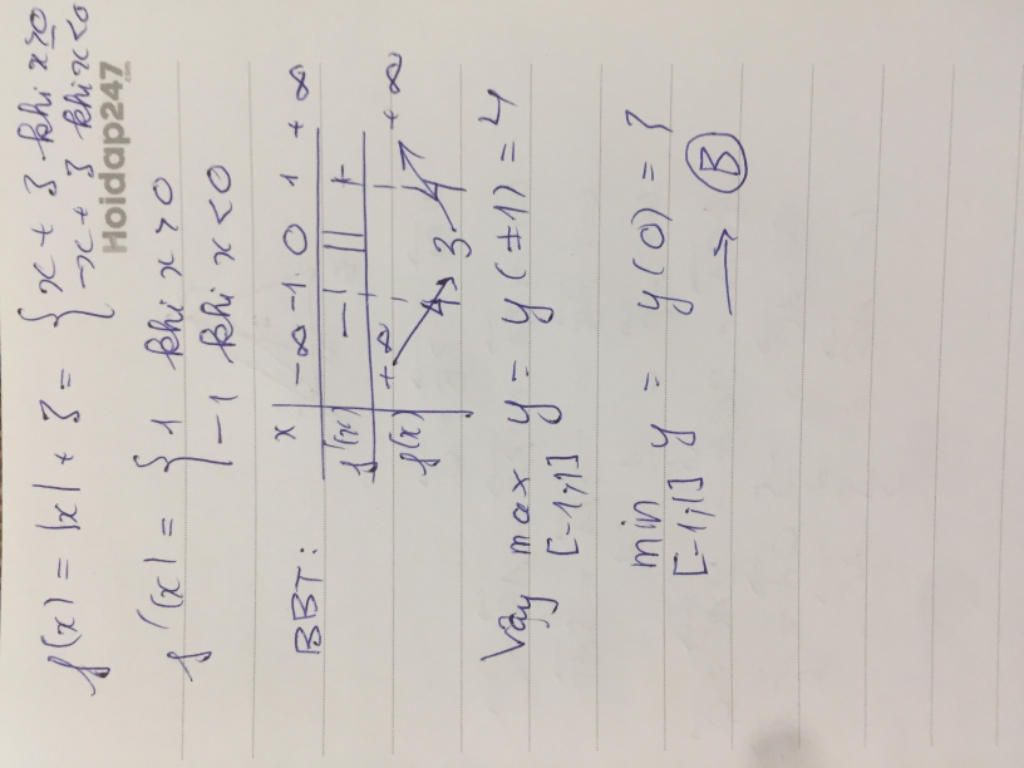 f(x) = |x| + 3 = { x + 3 khi x ≥ 0
-x + 3 khi x < 0
Hoidap247.com
f'(x) = { 1 khi x > 0
-1 khi x < 0
BBT:
x -∞ -1 0 1 +∞
f'(x) - || +
f(x) +∞ 4 3 4 +∞
Vậy max y = y(±1) = 4
[-1;1]
min y = y(0) = 3
[-1;1]
→ B